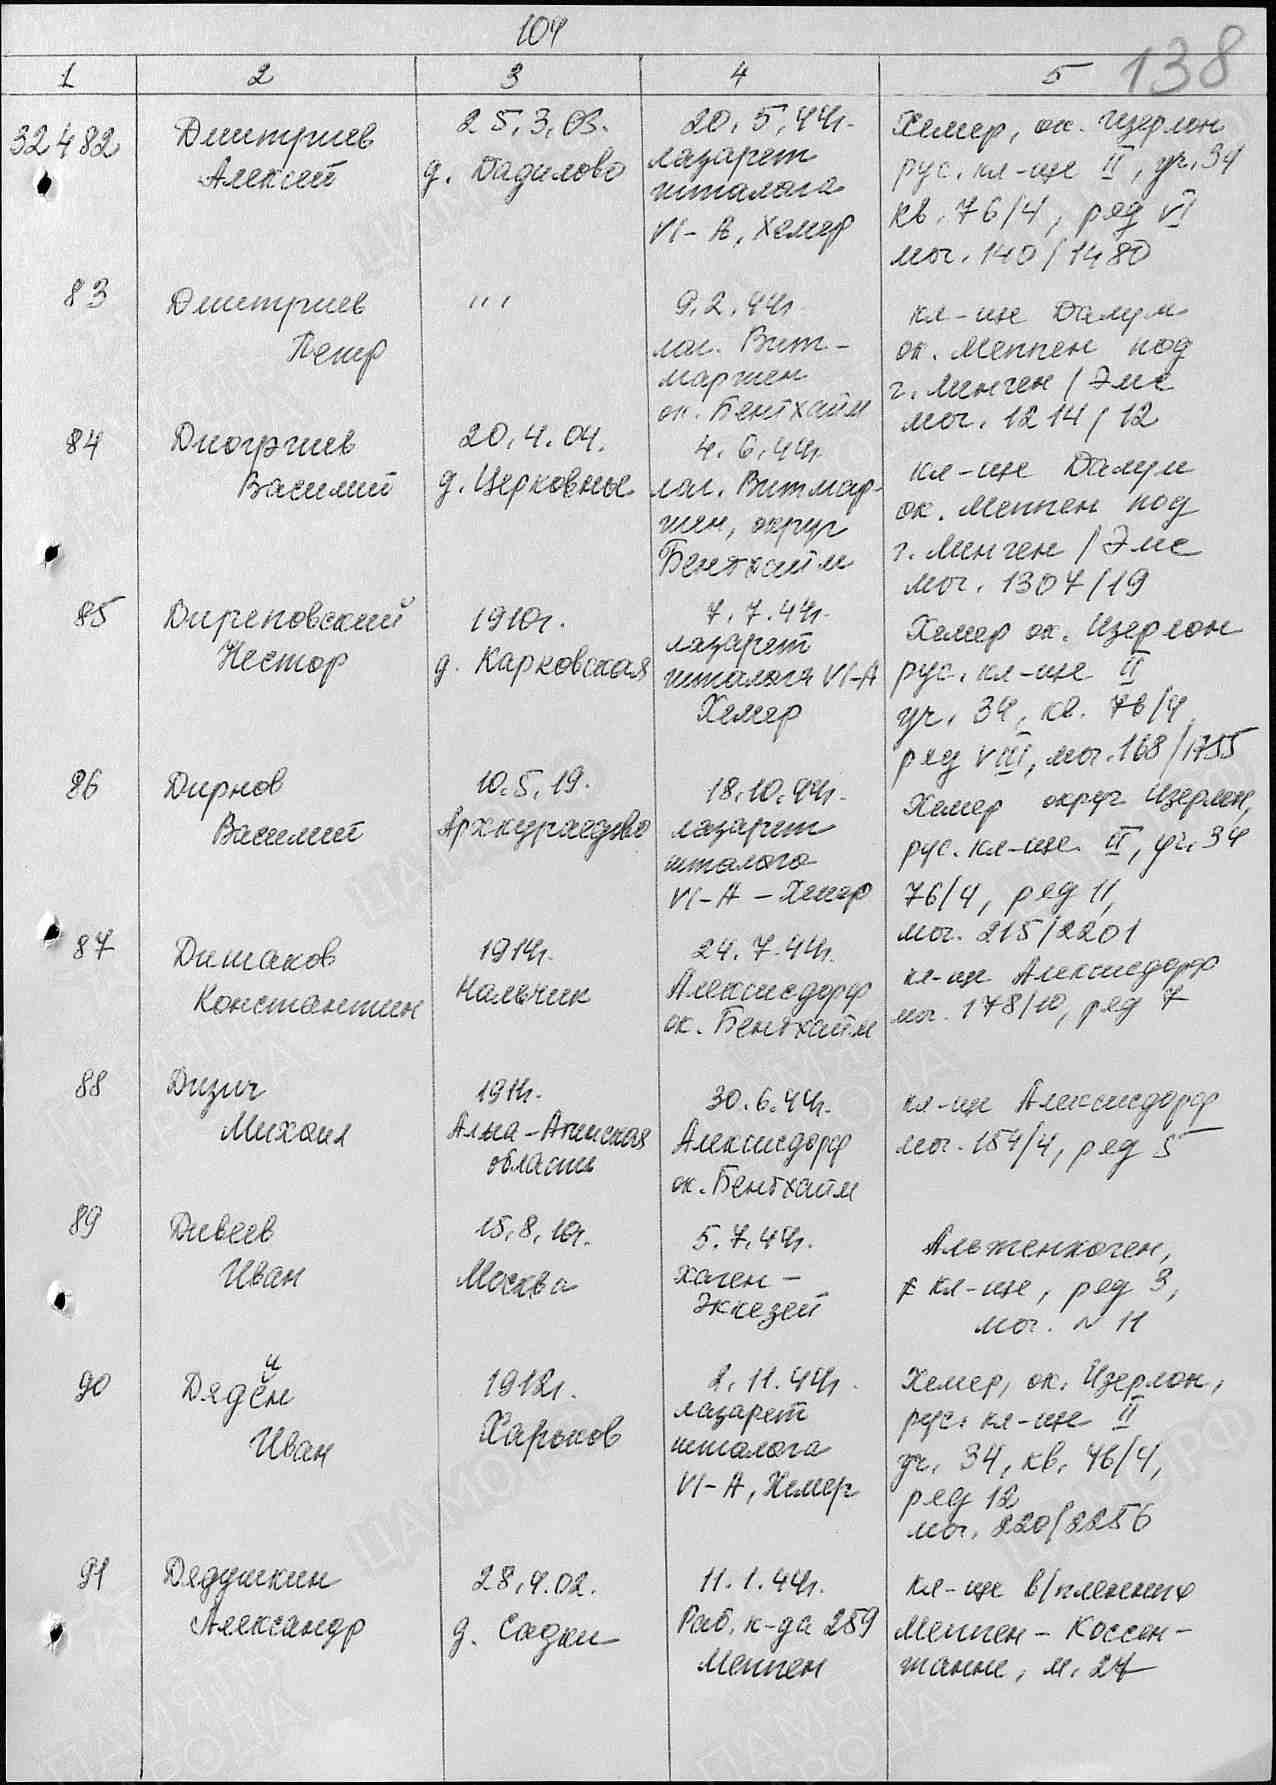 104
138
1 2 3 4 5
32482
Дмитриев
Алексей
25.3.03.
д. Бадилово
20.5.44г.
лазарет
шталага
VI-А, Хемер
Хемер, ок. Изерлон
рус. кл-ще II, уч. 34
кв. 76/4, ряд VI
мог. 140/1480
83
Дмитриев
Петр
"'
9.2.44г.
лаг. Вит-
маршен
ок. Бентхайм
кл-ще Далум
ок. Меппен под
г. Линген/Эмс
мог. 1214/12
84
Василий
20.4.04.
д. Церковные
4.6.44г.
лаг. Витмар-
шен, округ
Бентхайм
кл-ще Далум
ок. Меппен под
г. Линген/Эмс
мог. 1307/19
85
Диреповский
Нестор
1910г.
д. Карковская
7.7.44г.
лазарет
шталага VI-А
Хемер
Хемер ок. Изерлон
рус. кл-ще II
уч. 34, кв. 76/4,
ряд VIII, мог. 168/1755
86
Дирнов
Василий
10.5.19.
18.10.44г.
лазарет
шталага
VI-А - Хемер
Хемер округ Изерлон,
рус. кл-ще II, уч. 34
76/4, ряд 11,
мог. 215/2201
87
Дишаков
Константин
1914г.
Нальчик
24.7.44г.
Алексисдорф
ок. Бентхайм
кл-ще Алексисдорф
мог. 178/10, ряд 7
88
Дизич
Михаил
1911г.
Алма-Атинская
область
30.6.44г.
Алексисдорф
ок. Бентхайм
кл-ще Алексисдорф
мог. 154/4, ряд 5
89
Дивеев
Иван
15.8.10г.
Москва
5.7.44г.
Хаген-
Эккезей
Альтенхаген,
кл-ще, ряд 3,
мог. N 11
90
и
Дядён
Иван
1912г.
Харьков
2.11.44г.
лазарет
шталага
VI-А, Хемер
Хемер, ок. Изерлон,
рус. кл-ще II
уч. 34, кв. 76/4,
ряд 12
мог. 220/2256
91
Дядушкин
Александр
28.4.02.
д. Садки
11.1.44г.
Раб. к-да 259
Меппен
кл-ще в/пленных
Меппен - Коссен-
танне, м. 27